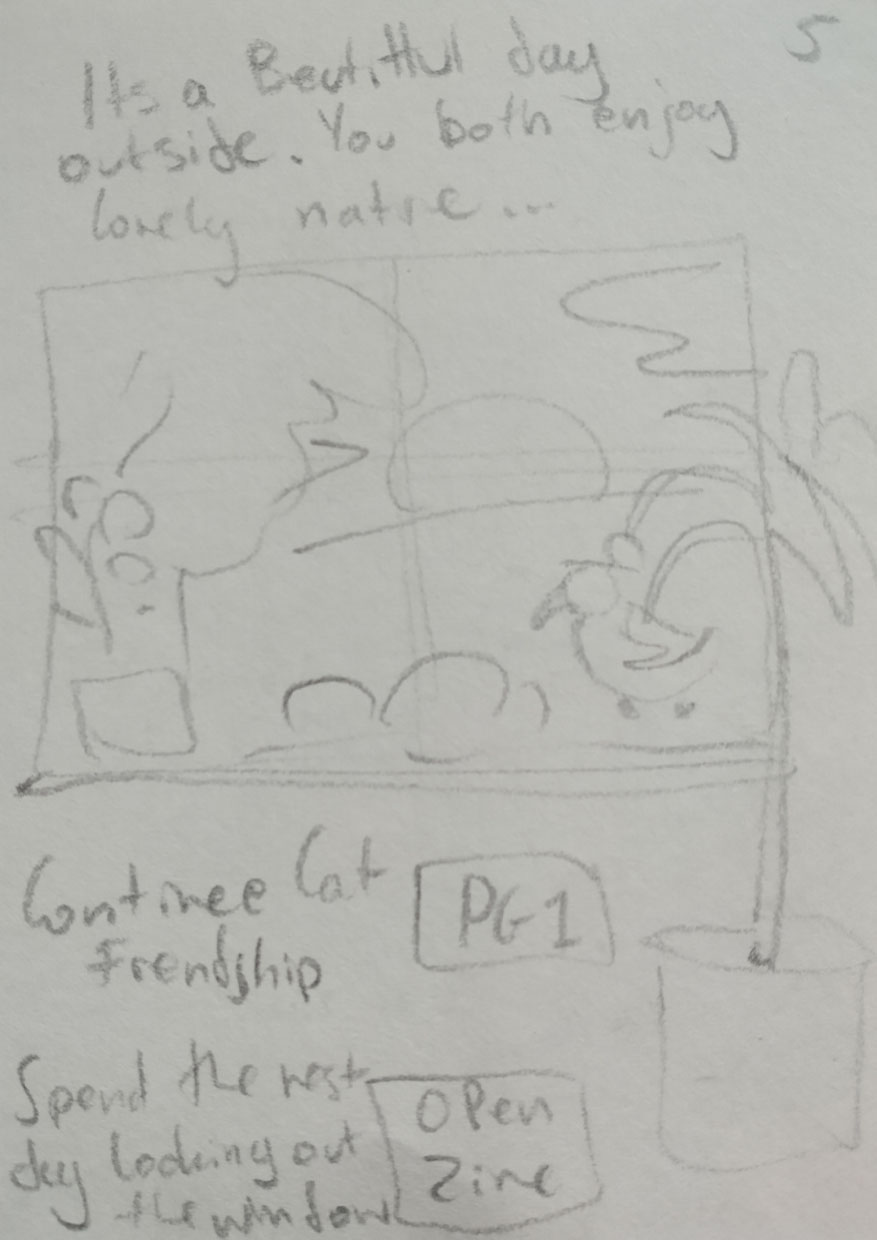 5
Its a Beutifful day
outside. You both enjoy
lovely natre...
Continee Cat
Frendship
PG1
Spend the rest
day looking out
the window
OPen
Zine